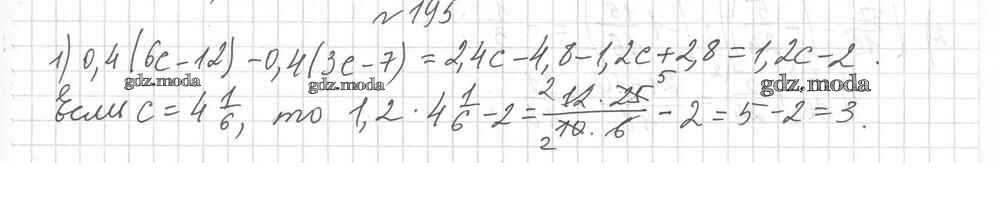 №195
1) 0,4(6c-12)-0,4(3c-7)=2,4c-4,8-1,2c+2,8=1,2c-2.
gdz.moda
gdz.moda
gdz.moda
Если c=4 1/6, то 1,2·4 1/6-2=(12·25)/(10·6)-2=5-2=3.
2 5
2